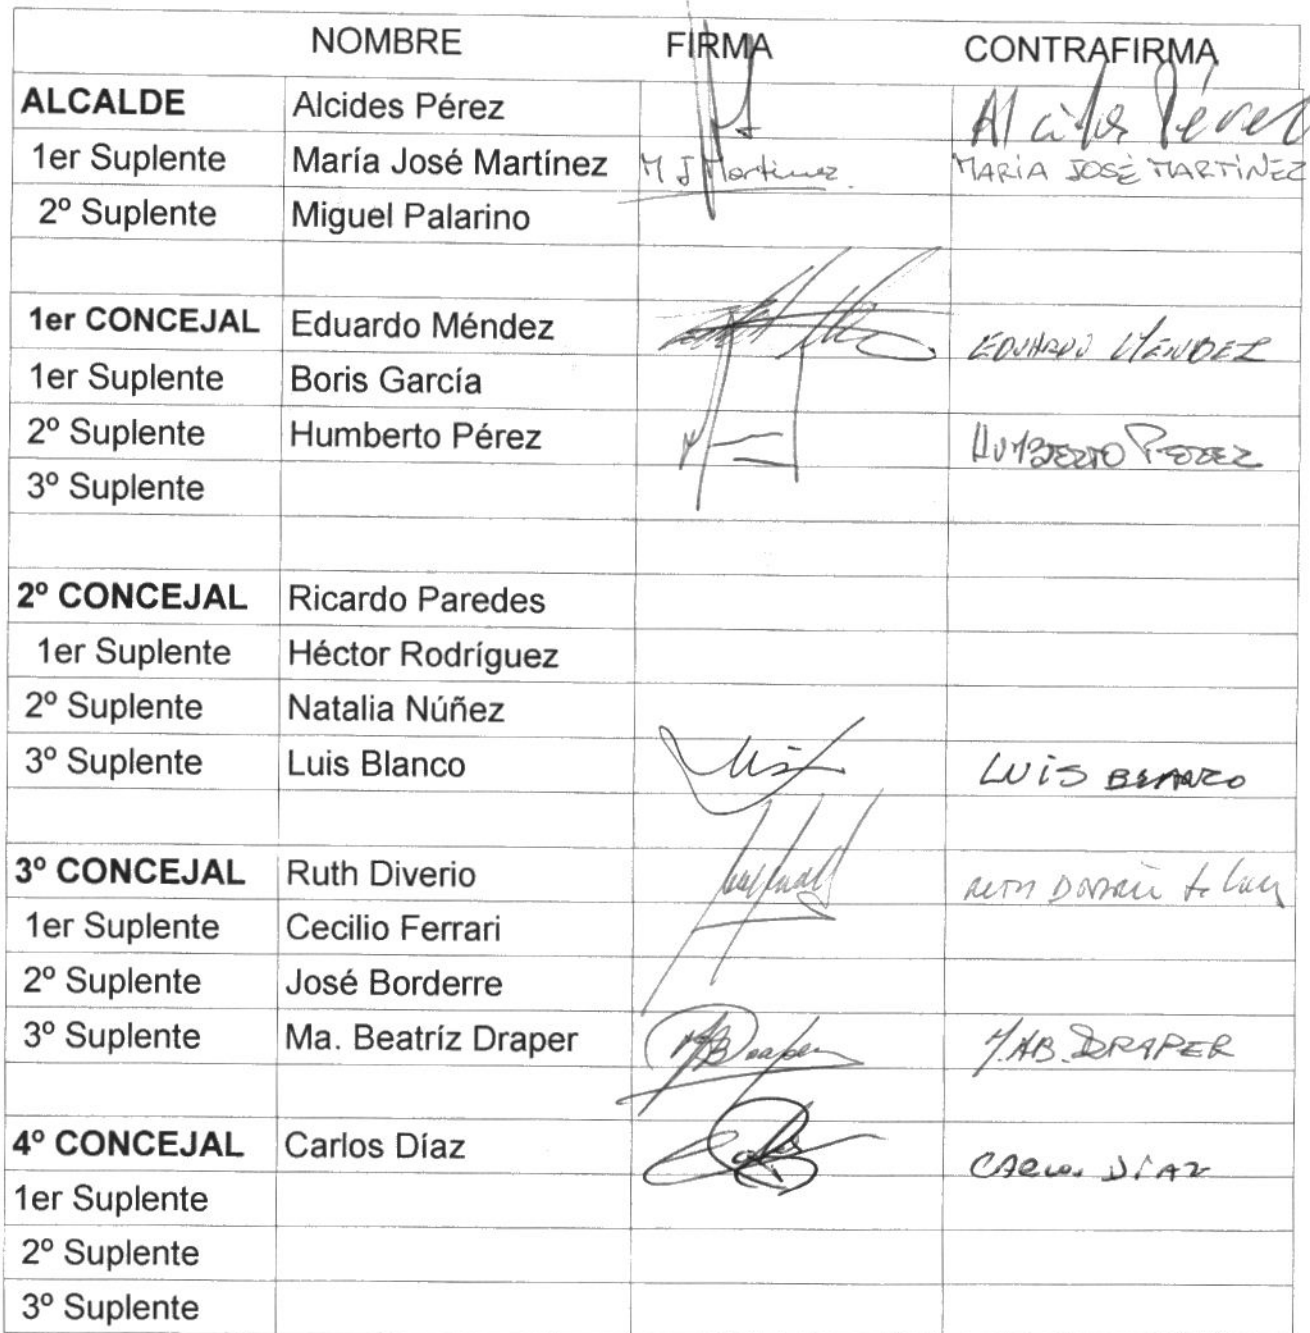 NOMBRE FIRMA CONTRAFIRMA
ALCALDE Alcides Pérez Alcides Pérez
1er Suplente María José Martínez M J Martinez MARIA JOSÉ MARTÍNEZ
2º Suplente Miguel Palarino
1er CONCEJAL Eduardo Méndez EDUARDO MENDEZ
1er Suplente Boris García
2º Suplente Humberto Pérez HUMBERTO PEREZ
3º Suplente
2º CONCEJAL Ricardo Paredes
1er Suplente Héctor Rodríguez
2º Suplente Natalia Núñez
3º Suplente Luis Blanco Luis LUIS BLANCO
3º CONCEJAL Ruth Diverio RUTH
1er Suplente Cecilio Ferrari
2º Suplente José Borderre
3º Suplente Ma. Beatríz Draper MB Draper M.AB. DRAPER
4º CONCEJAL Carlos Díaz CARLOS DÍAZ
1er Suplente
2º Suplente
3º Suplente